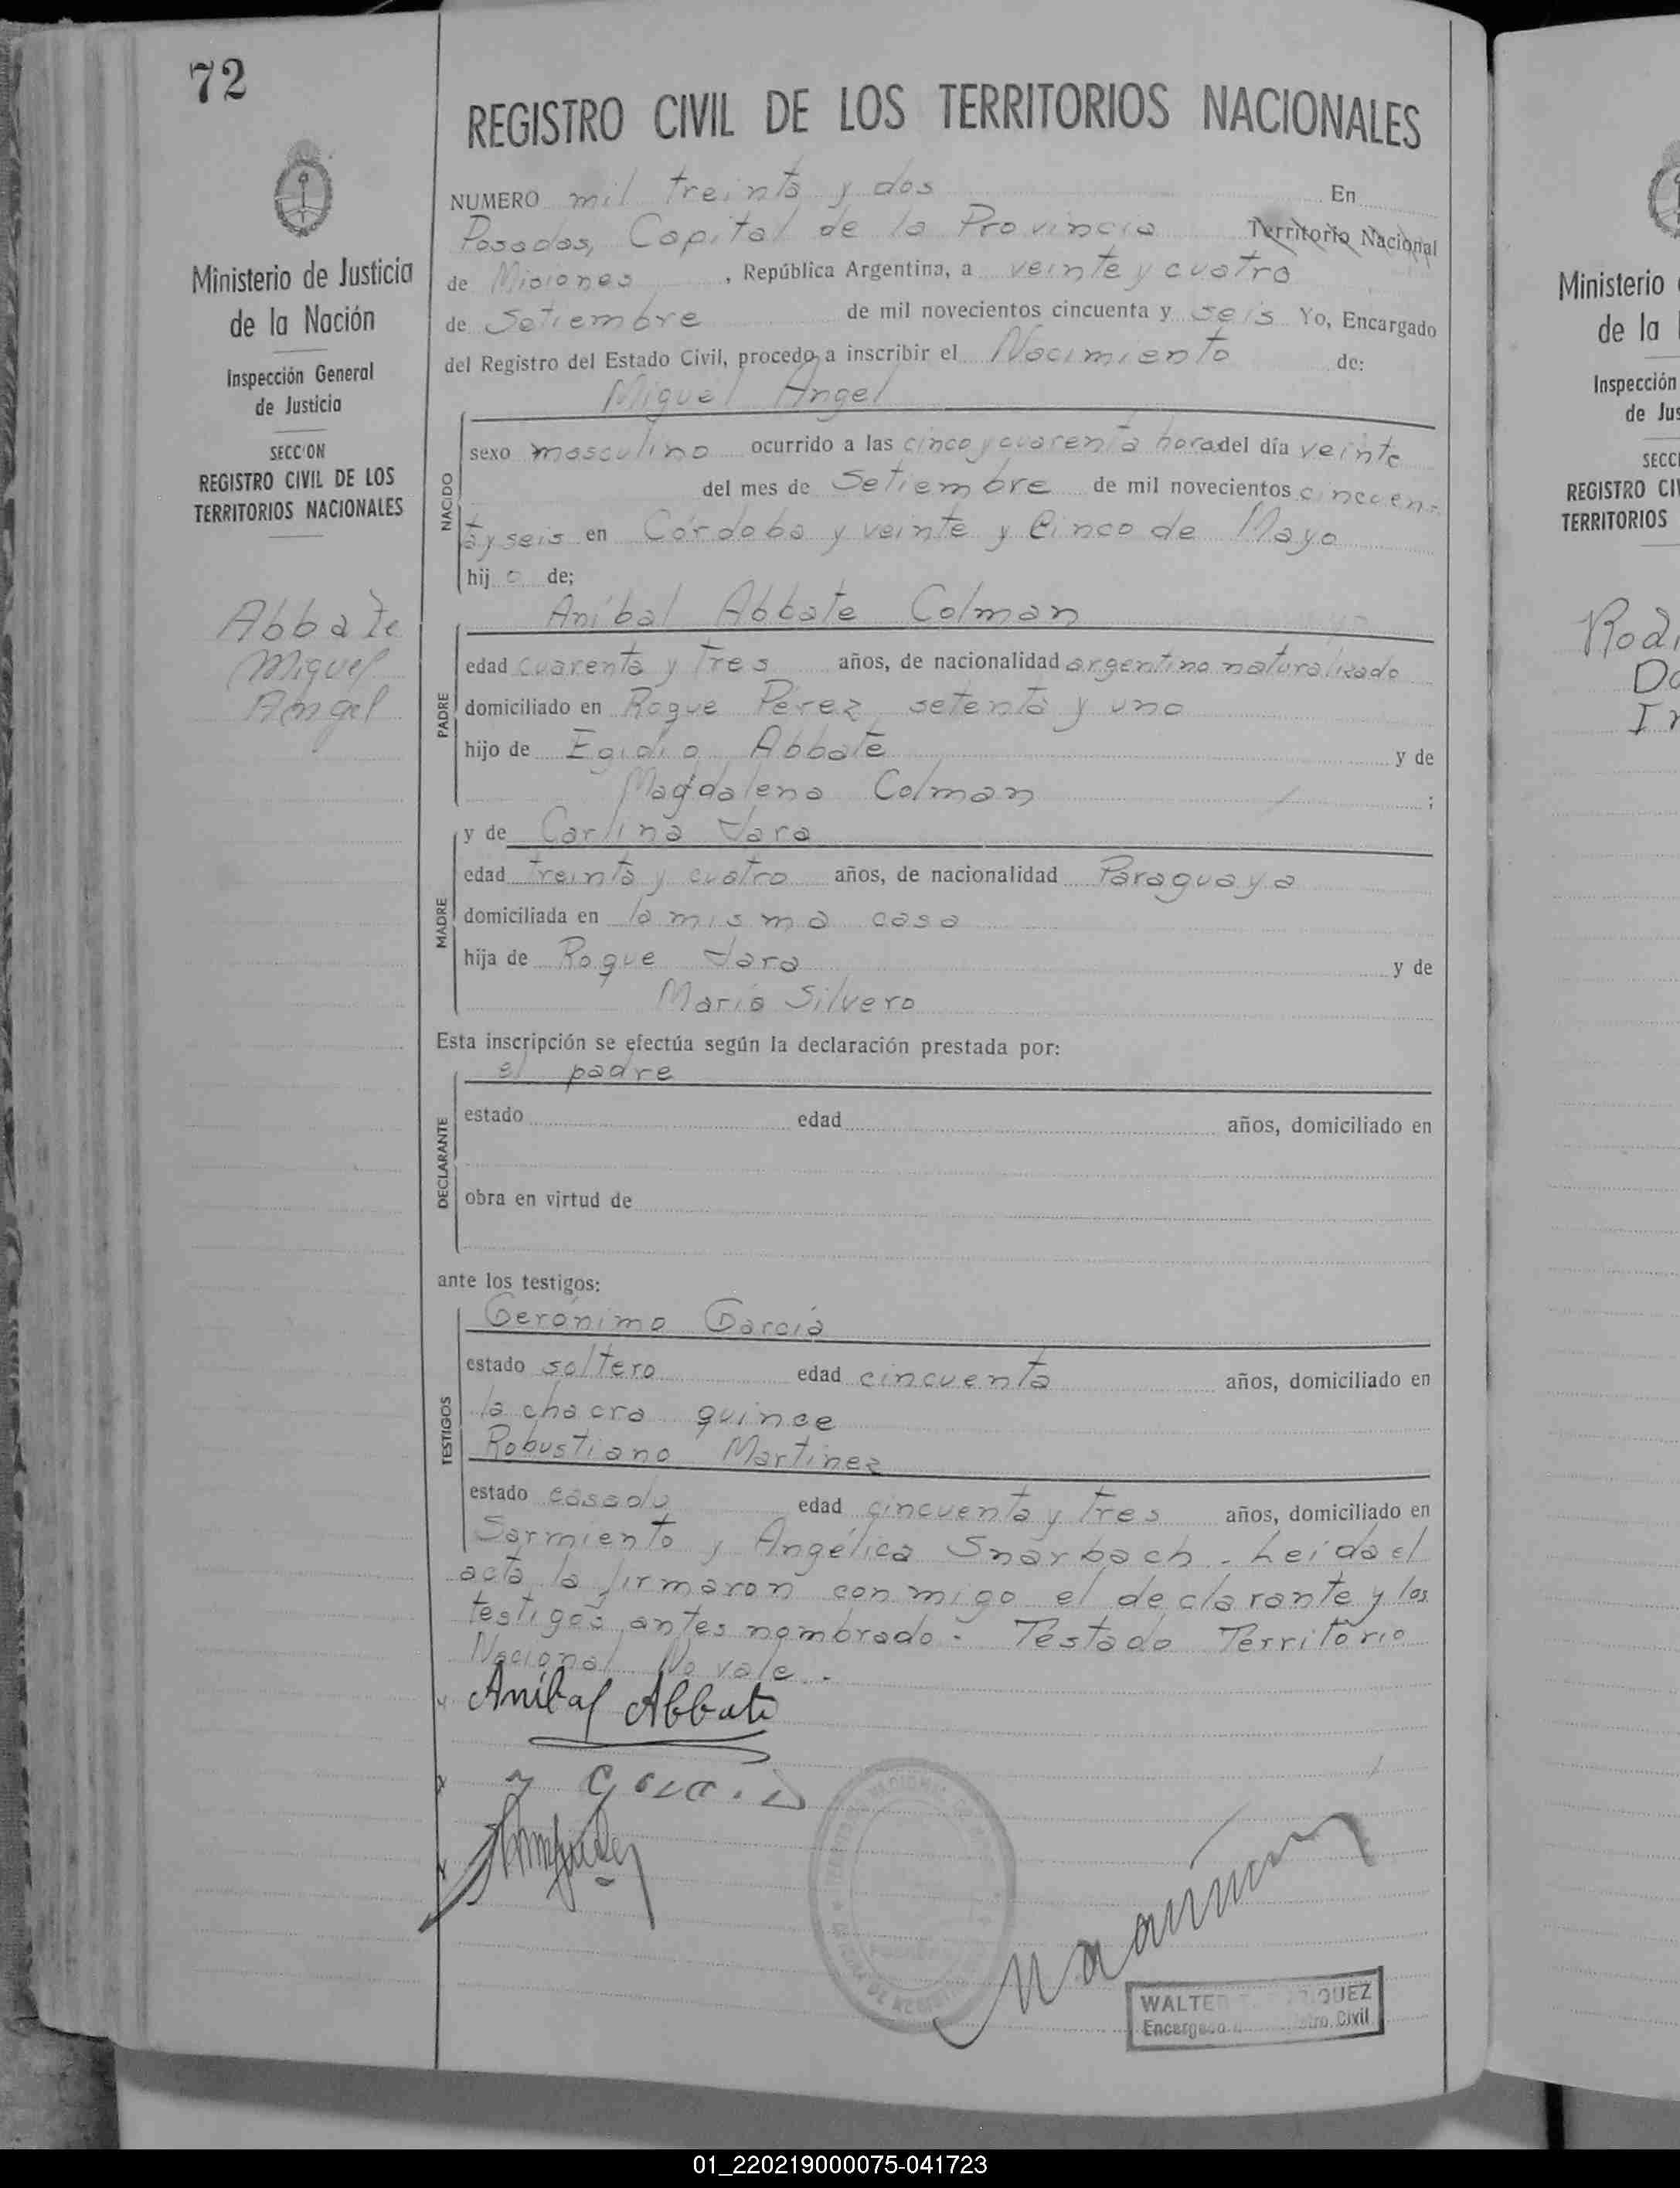 72
Ministerio de Justicia
de la Nación
Inspección General
de Justicia
SECCION
REGISTRO CIVIL DE LOS
TERRITORIOS NACIONALES
Abbate
Miguel
Angel
REGISTRO CIVIL DE LOS TERRITORIOS NACIONALES
NUMERO mil treinta y dos En
Posadas, Capital de la Provincia Territorio Nacional
de Misiones, República Argentina, a veinte y cuatro
de Setiembre de mil novecientos cincuenta y seis Yo, Encargado
del Registro del Estado Civil, procedo a inscribir el Nacimiento de:
Miguel Angel
NACIDO
sexo masculino ocurrido a las cinco y cuarenta horas del día veinte
del mes de Setiembre de mil novecientos cincuen-
ta y seis en Córdoba y veinte y Cinco de Mayo
hijo de;
Aníbal Abbate Colman
PADRE
edad cuarenta y tres años, de nacionalidad argentino naturalizado
domiciliado en Roque Pérez setenta y uno
hijo de Egidio Abbate y de
Magdalena Colman ;
MADRE
y de Carlina Jara
edad treinta y cuatro años, de nacionalidad Paraguaya
domiciliada en la misma casa
hija de Roque Jara y de
María Silvero
Esta inscripción se efectúa según la declaración prestada por:
el padre
DECLARANTE
estado edad años, domiciliado en
obra en virtud de
ante los testigos:
TESTIGOS
Gerónimo García
estado soltero edad cincuenta años, domiciliado en
la chacra quince
Robustiano Martinez
estado casado edad cincuenta y tres años, domiciliado en
Sarmiento y Angélica Snarbach. Leida el
acta la firmaron conmigo el declarante y los
testigos antes nombrado. Testado Territorio
Nacional No vale.
Aníbal Abbate
García
WALTER QUEZ
Encargado Civil
Ministerio
de la
Inspección
de Jus
SECC
REGISTRO CI
TERRITORIOS
Rodr
01_220219000075-041723